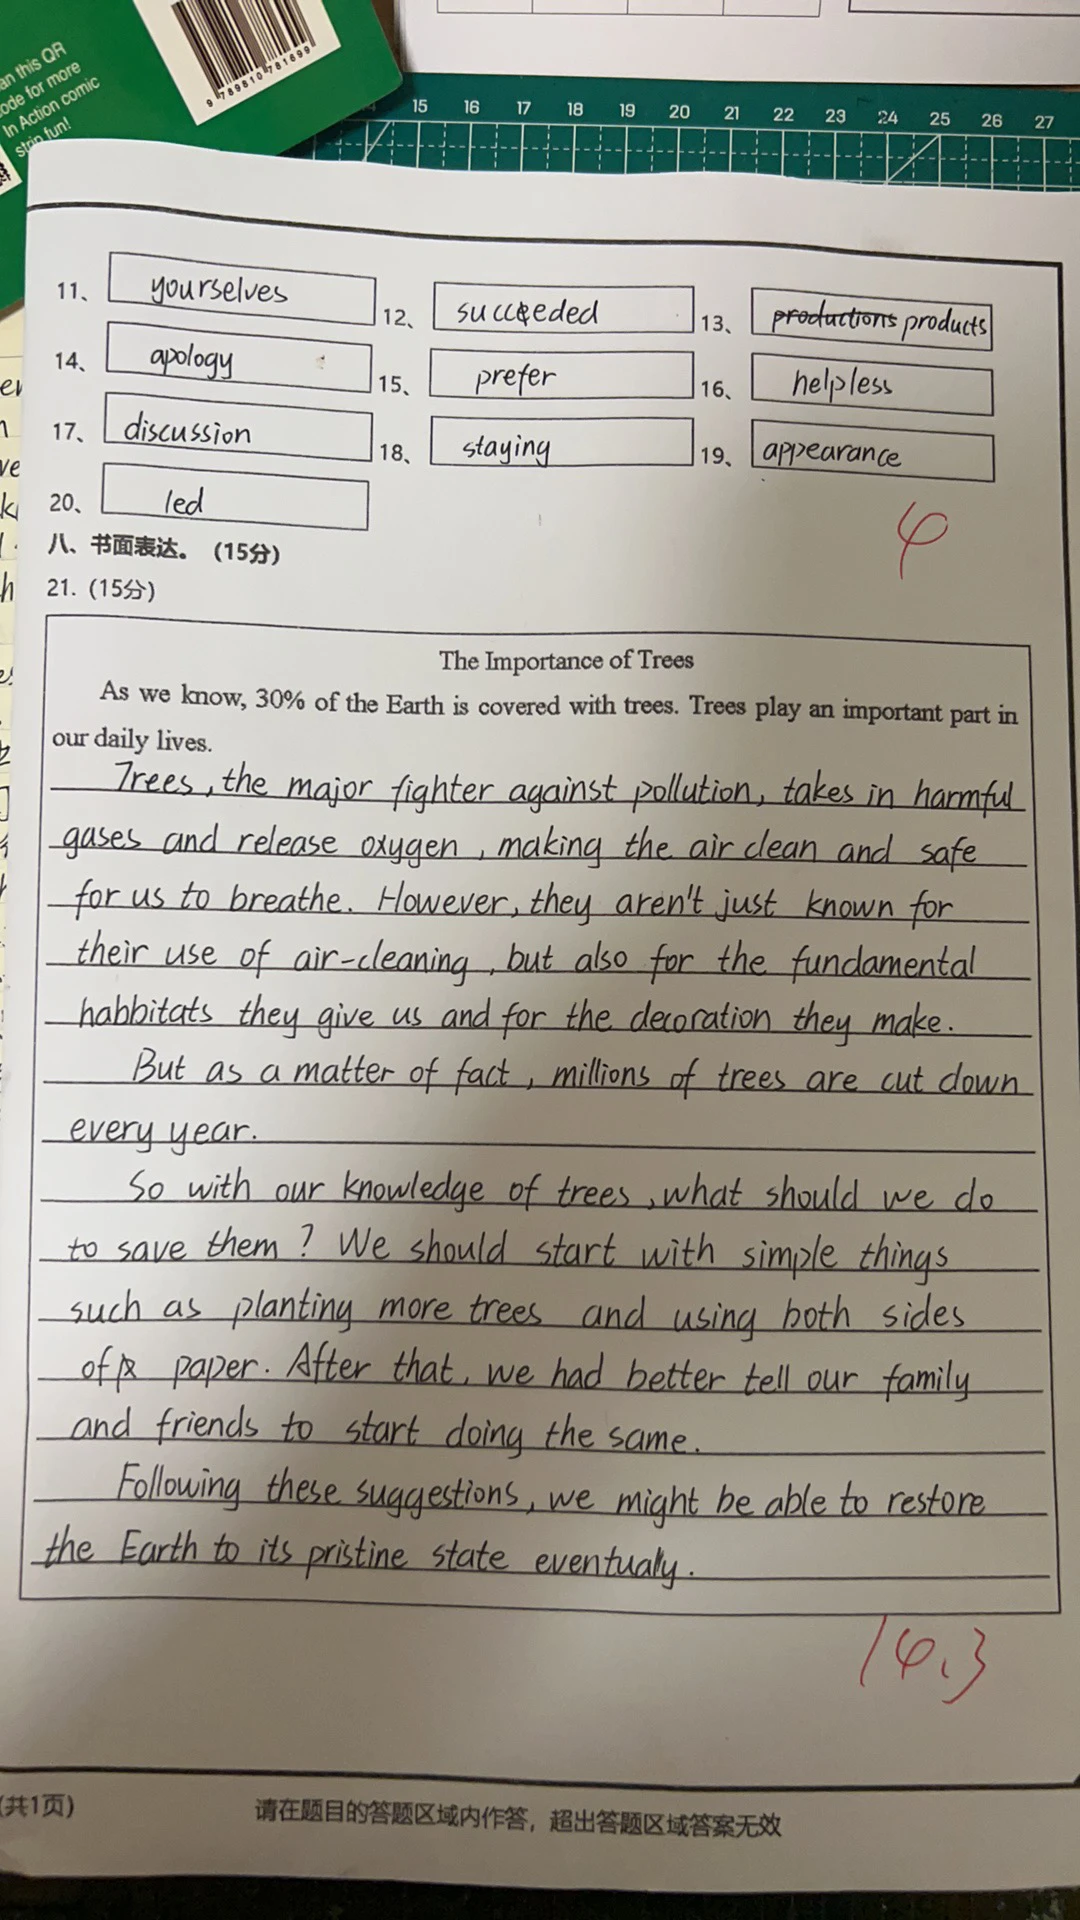 an this QR
ode for more
In Action comic
strip fun!
9 789810 781699
15 16 17 18 19 20 21 22 23 24 25 26 27
11、 yourselves 12、 succeeded 13、 productions products
14、 apology 15、 prefer 16、 helpless
17、 discussion 18、 staying 19、 appearance
20、 led
八、书面表达。(15分)
21. (15分)
The Importance of Trees
As we know, 30% of the Earth is covered with trees. Trees play an important part in
our daily lives.
Trees, the major fighter against pollution, takes in harmful
gases and release oxygen, making the air clean and safe
for us to breathe. However, they aren't just known for
their use of air-cleaning, but also for the fundamental
habbitats they give us and for the decoration they make.
But as a matter of fact, millions of trees are cut down
every year.
So with our knowledge of trees, what should we do
to save them? We should start with simple things
such as planting more trees and using both sides
of paper. After that, we had better tell our family
and friends to start doing the same.
Following these suggestions, we might be able to restore
the Earth to its pristine state eventualy.
14.3
(共1页)
请在题目的答题区域内作答，超出答题区域答案无效